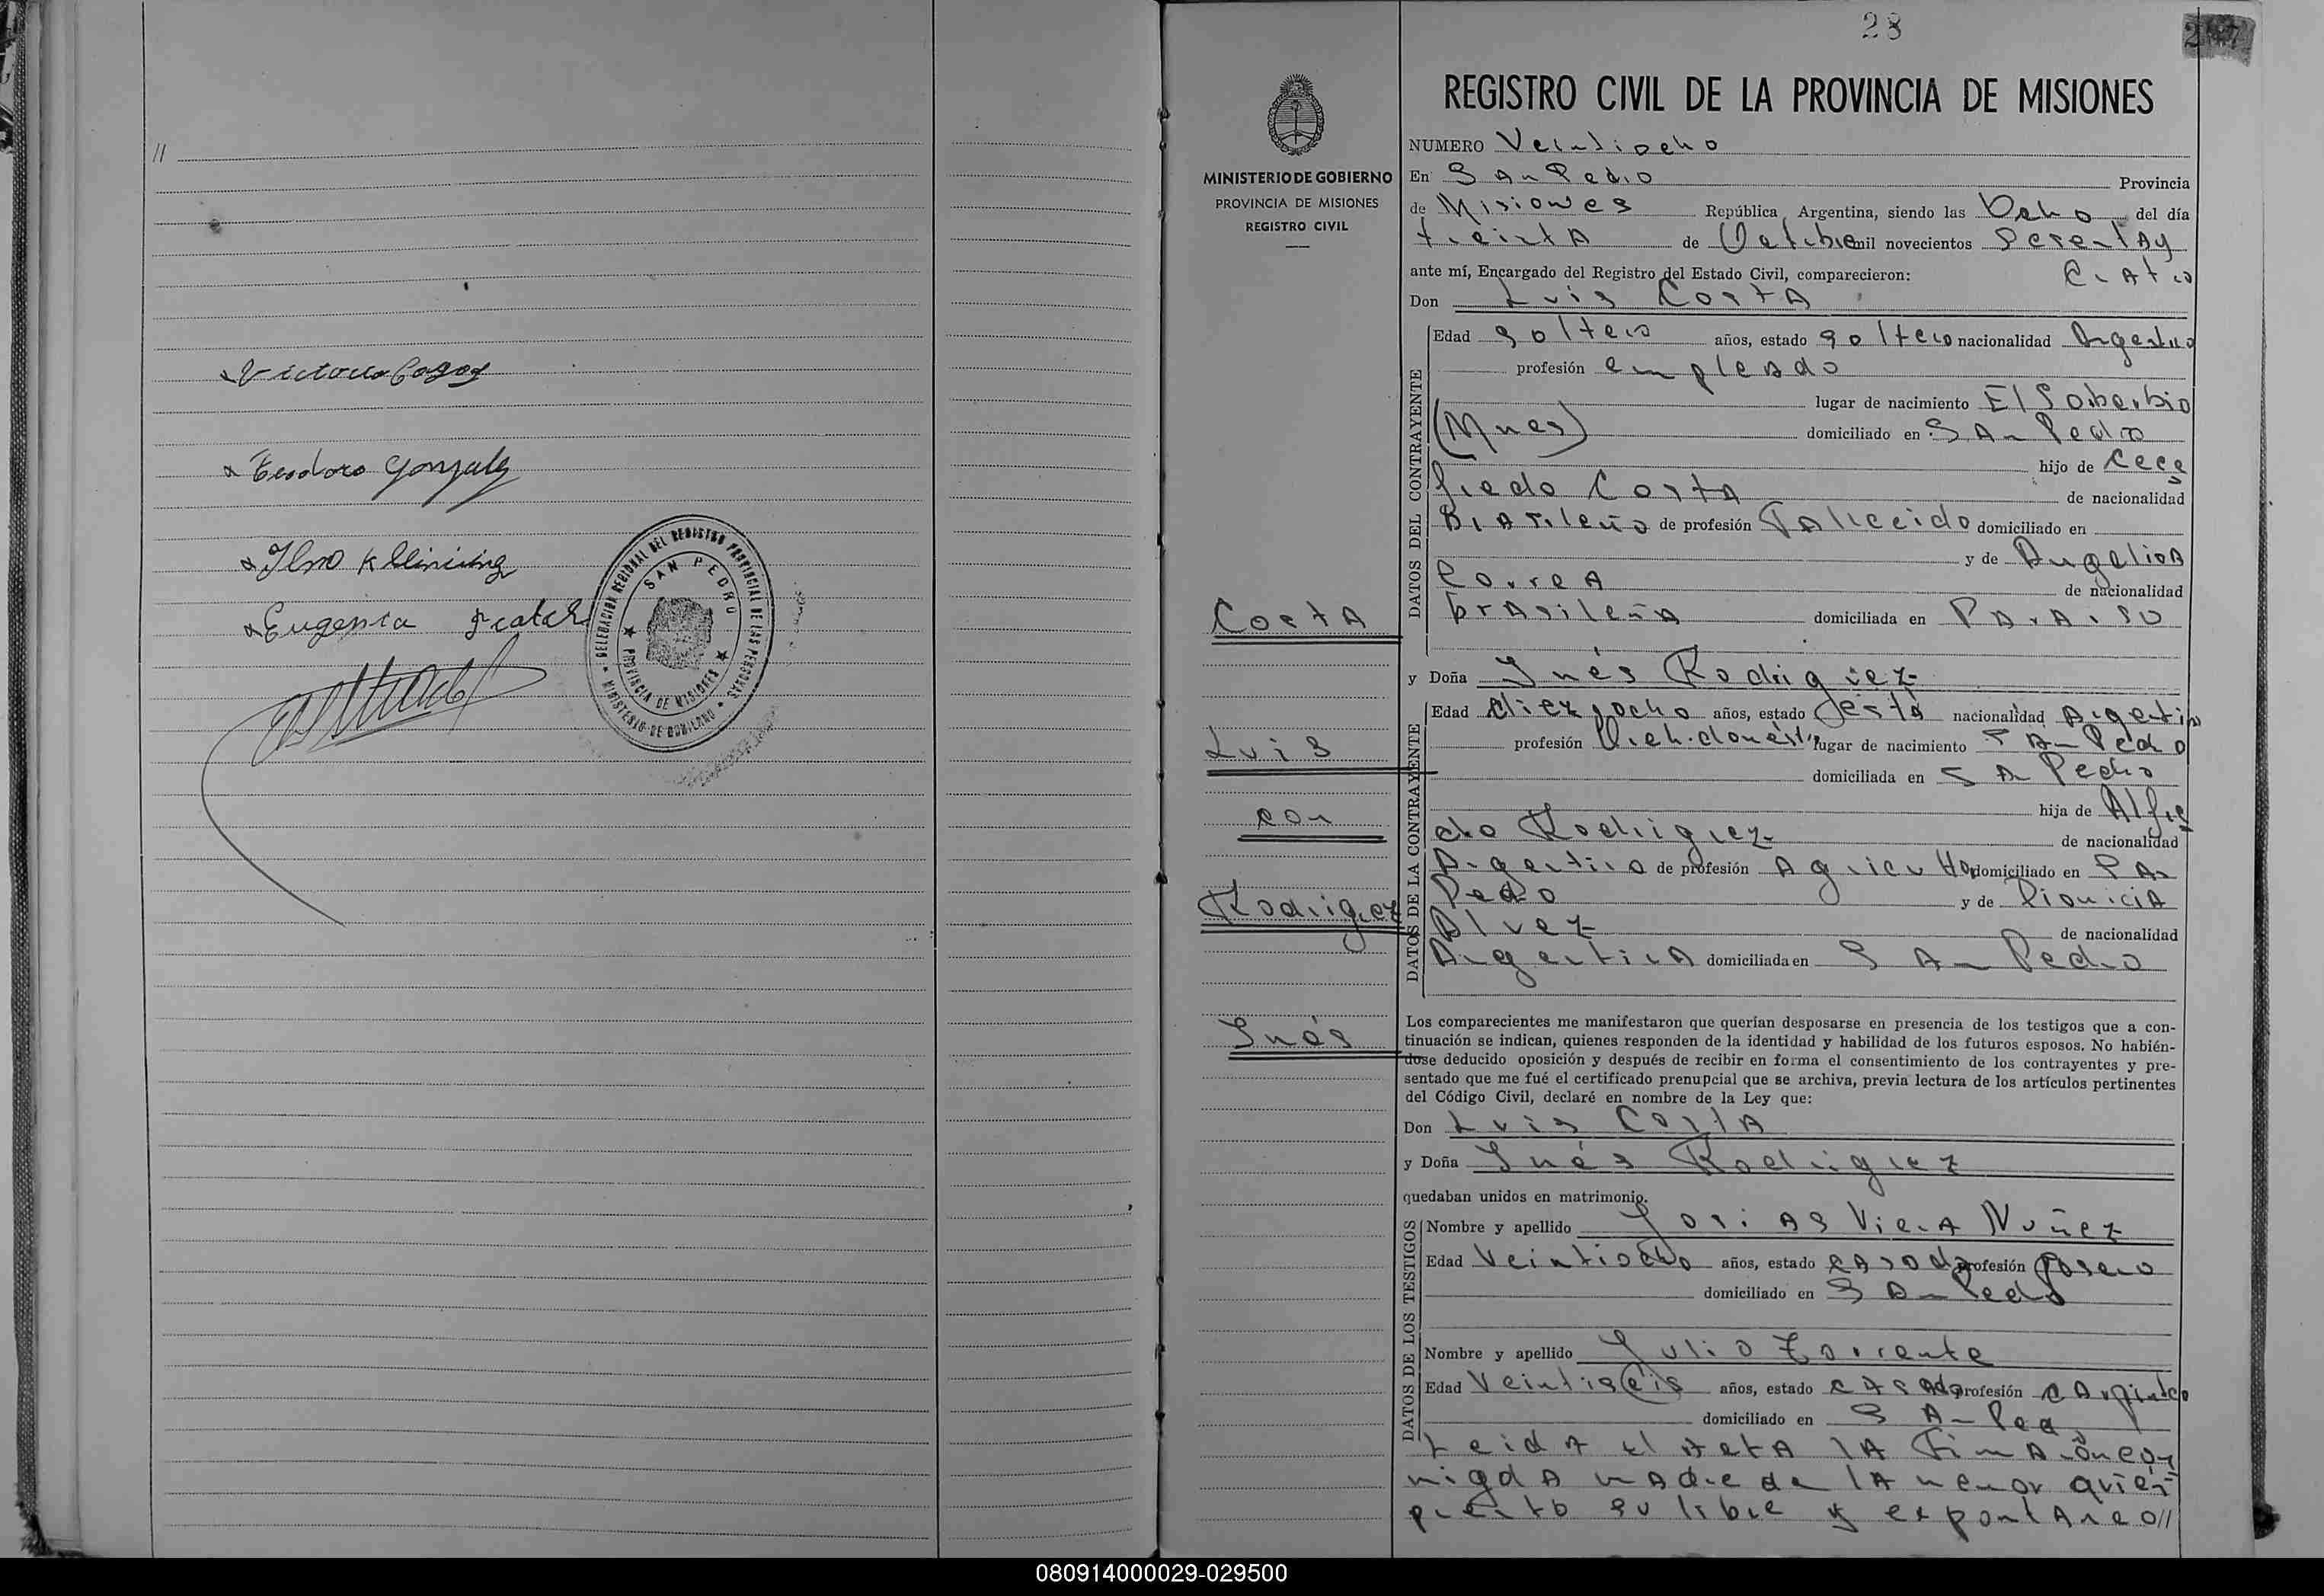 //
Teodoro Gonzalez
Eugenia
DELEGACIÓN REGIONAL DEL REGISTRO PROVINCIAL DE LAS PERSONAS
SAN PEDRO
★ PROVINCIA DE MISIONES ★
• MINISTERIO DE GOBIERNO •
28
MINISTERIO DE GOBIERNO
PROVINCIA DE MISIONES
REGISTRO CIVIL
Costa
Luis
con
Rodriguez
Inés
REGISTRO CIVIL DE LA PROVINCIA DE MISIONES
NUMERO Veintiocho
En San Pedro Provincia
de Misiones República Argentina, siendo las Ocho del día
treinta de Octubre mil novecientos sesenta y
cuatro
ante mí, Encargado del Registro del Estado Civil, comparecieron:
Don Luis Costa
DATOS DEL CONTRAYENTE
Edad soltero años, estado soltero nacionalidad Argentino
profesión empleado
lugar de nacimiento El Soberbio
(Mnes) domiciliado en San Pedro
hijo de
fredo Costa de nacionalidad
Brasileño de profesión Fallecido domiciliado en
y de Angelica
Correa de nacionalidad
brasileña domiciliada en
y Doña Inés Rodriguez
DATOS DE LA CONTRAYENTE
Edad diez y ocho años, estado nacionalidad Argentina
profesión Queh. domést. lugar de nacimiento San Pedro
domiciliada en San Pedro
hija de Alfre
do Rodriguez de nacionalidad
Argentino de profesión Agricultor domiciliado en San
Pedro y de Dionicia
Alvez de nacionalidad
Argentina domiciliada en San Pedro
Los comparecientes me manifestaron que querían desposarse en presencia de los testigos que a con-
tinuación se indican, quienes responden de la identidad y habilidad de los futuros esposos. No habién-
dose deducido oposición y después de recibir en forma el consentimiento de los contrayentes y pre-
sentado que me fué el certificado prenupcial que se archiva, previa lectura de los artículos pertinentes
del Código Civil, declaré en nombre de la Ley que:
Don Luis Costa
y Doña Inés Rodriguez
quedaban unidos en matrimonio.
DATOS DE LOS TESTIGOS
Nombre y apellido Josias Viera Nuñez
Edad Veintiocho años, estado casado profesión
domiciliado en San Pedro
Nombre y apellido Julio Torrente
Edad Veintiseis años, estado casado profesión carpintero
domiciliado en San Pedro
Leida el acta la firmaron con
migo la madre de la menor quien
presto su libre y expontaneo//
080914000029-029500